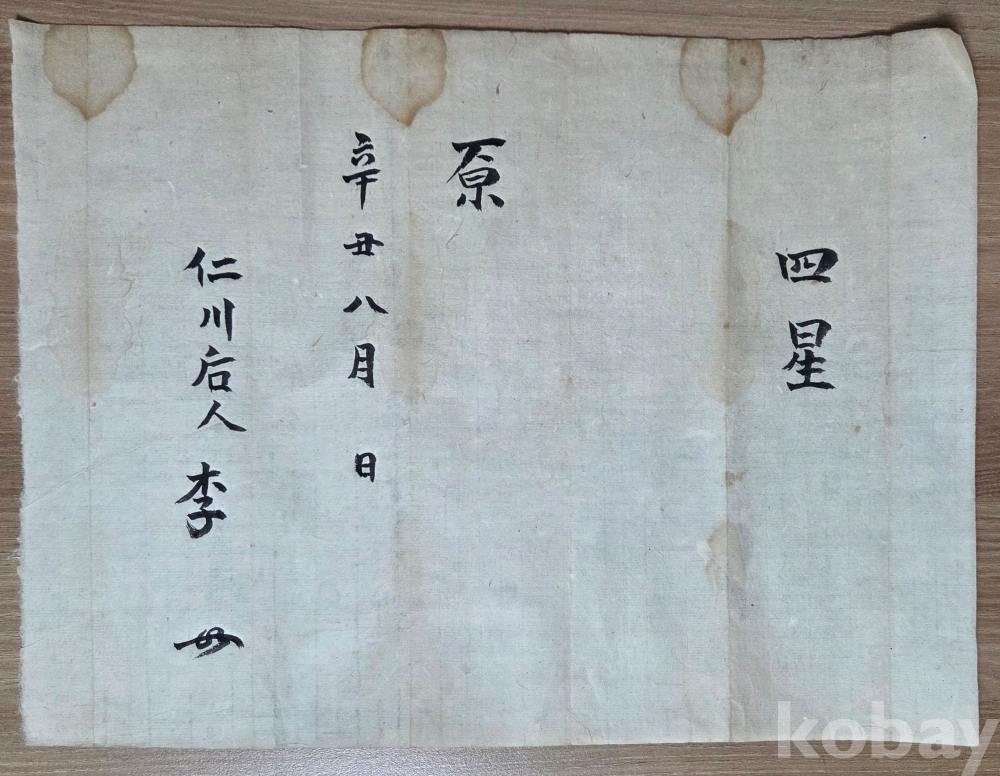 四星
原
辛丑八月 日
仁川后人 李
kobay